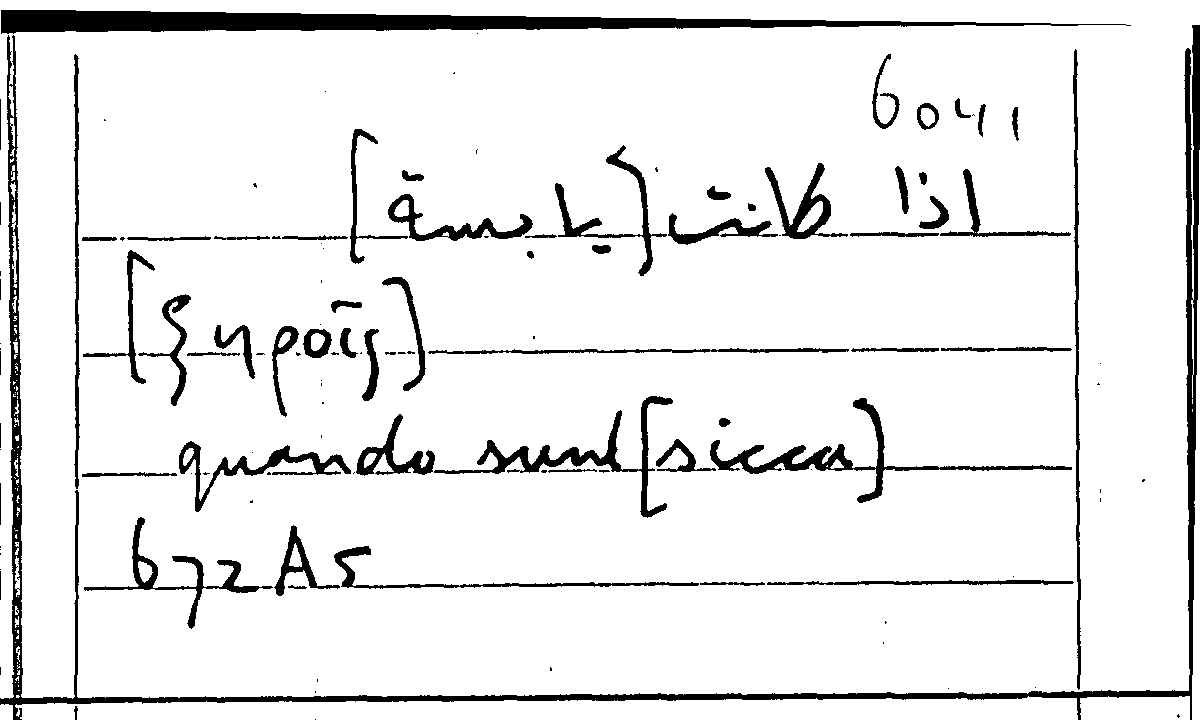 6041
اذا كانت [يابسة]
[ξηροῖς]
quando sunt [sicca]
672A5